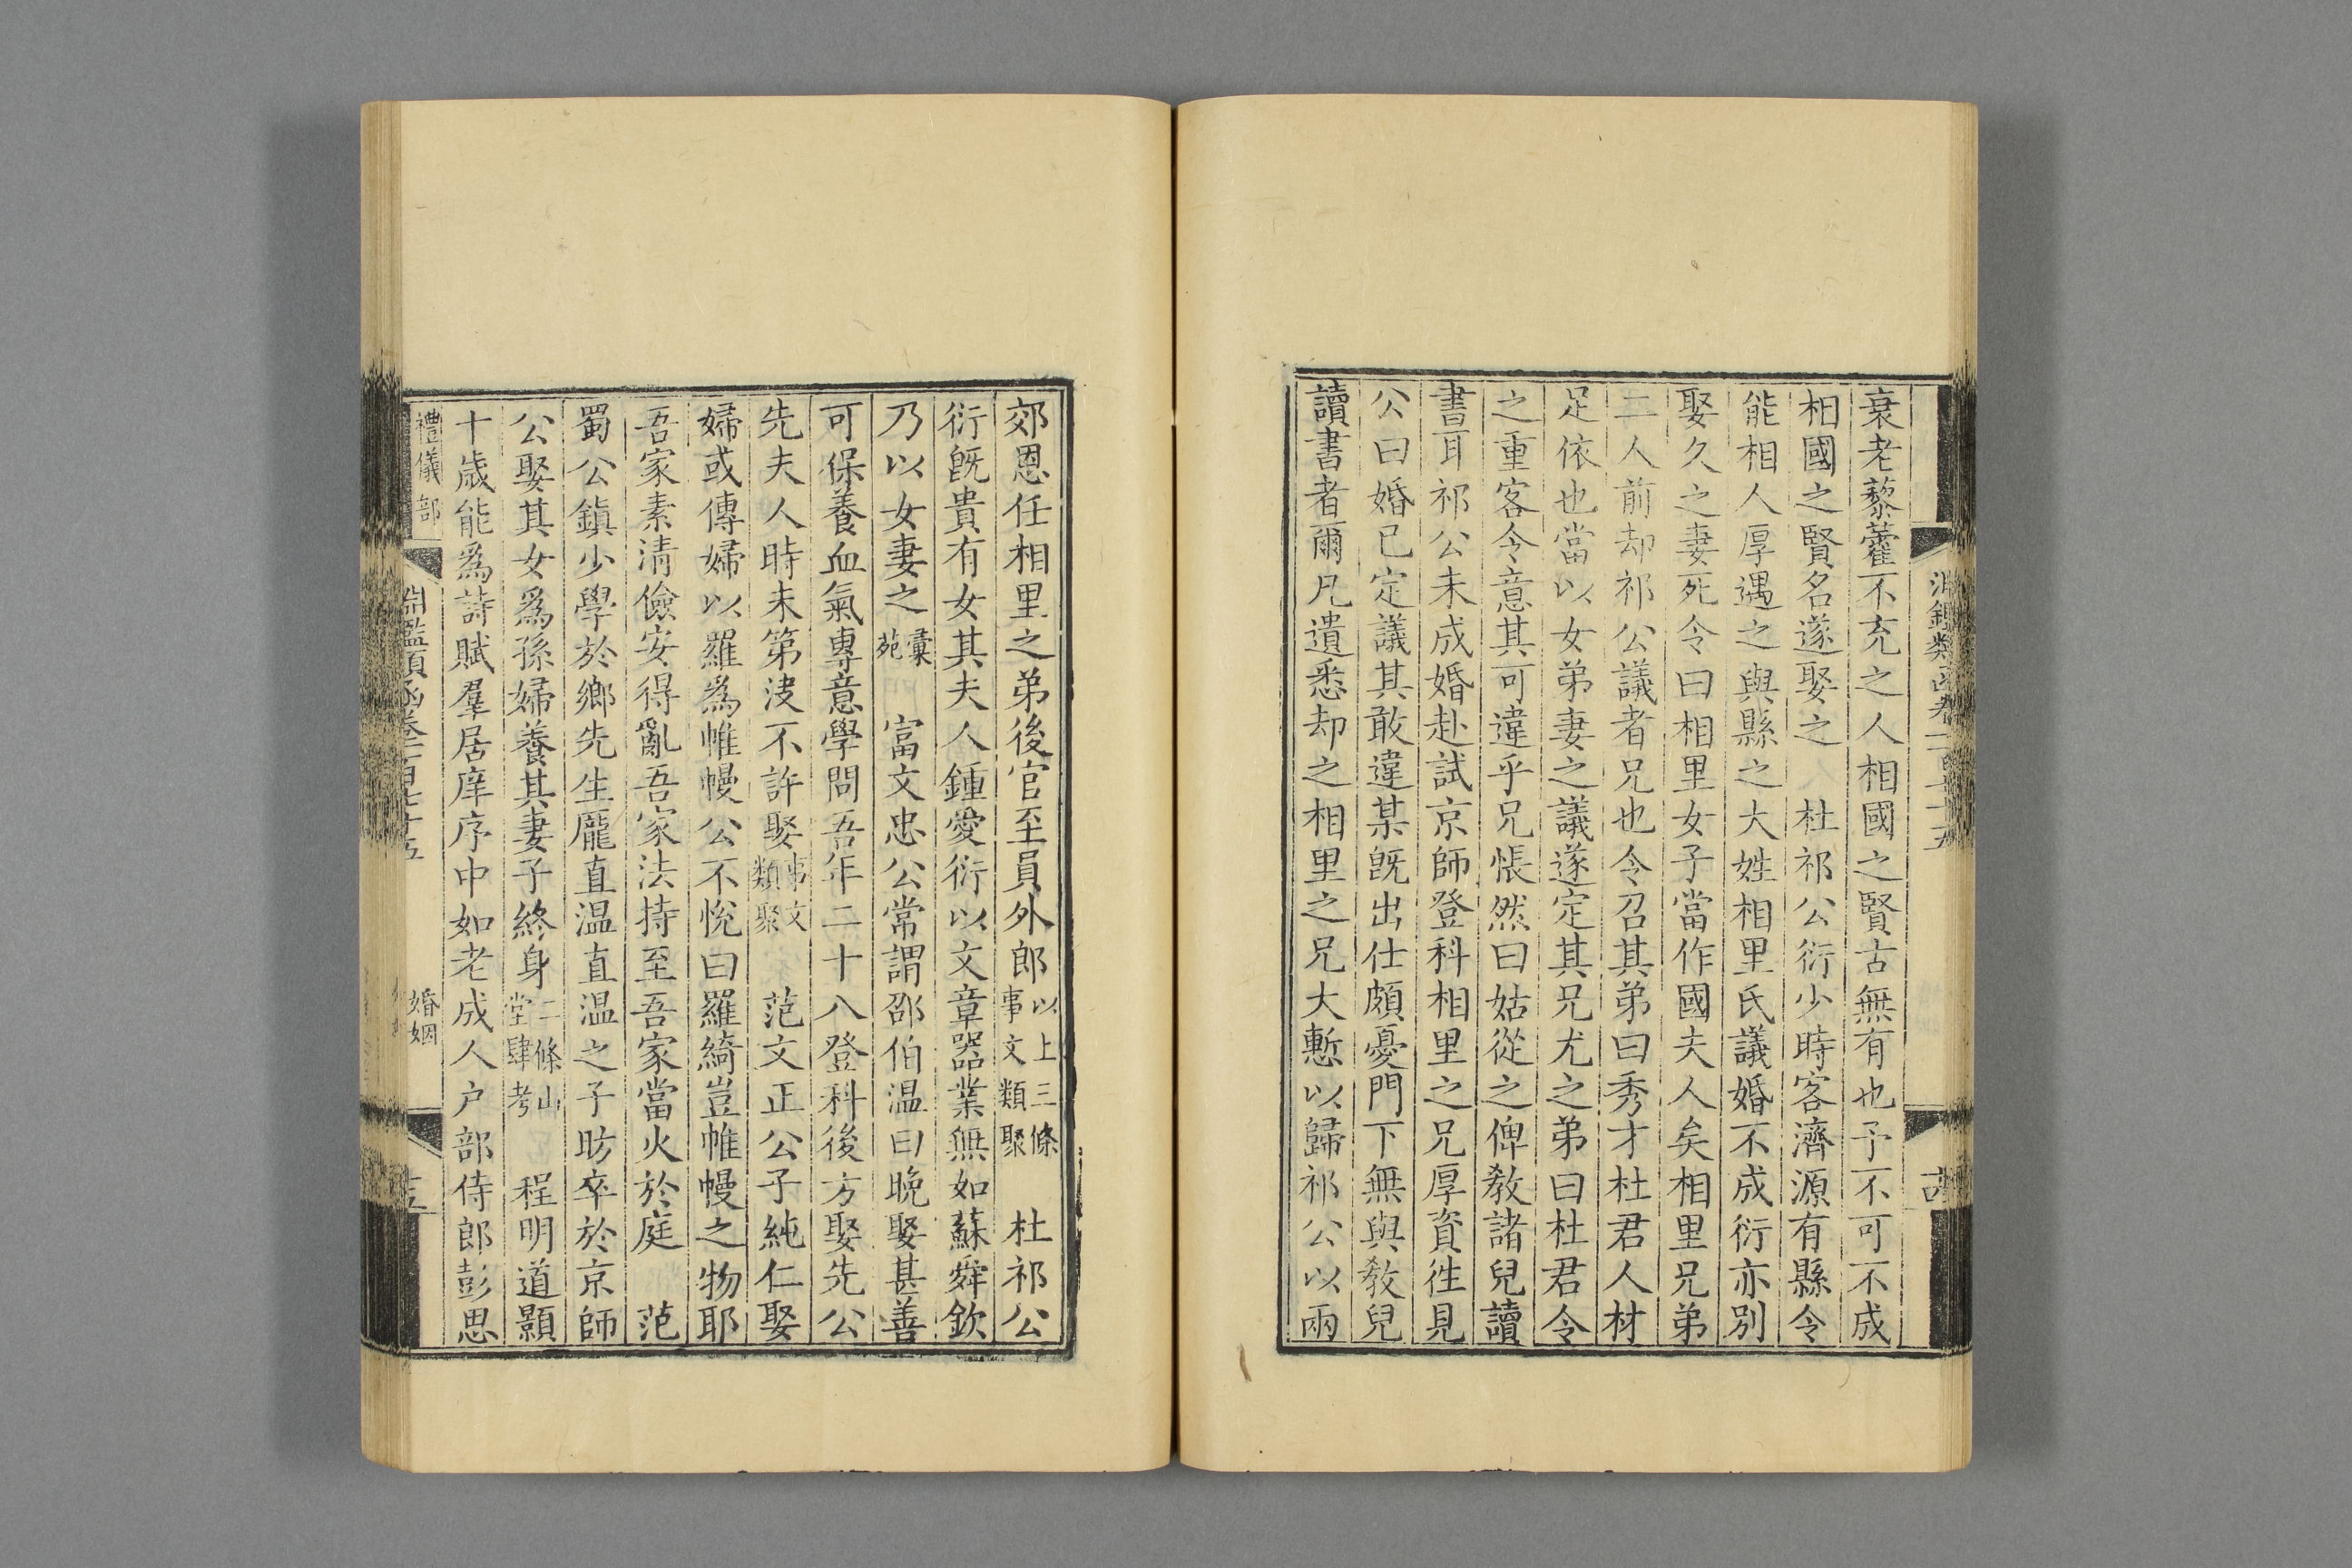 衰老藜藿不充之人相國之賢古無有也予不可不成
相國之賢名遂娶之　杜祁公衍少時客濟源有縣令
能相人厚遇之與縣之大姓相里氏議婚不成衍亦別
娶久之妻死令曰相里女子當作國夫人矣相里兄弟
二人前却祁公議者兄也令召其弟曰秀才杜君人材
足依也當以女弟妻之議遂定其兄尤之弟曰杜君令
之重客令意其可違乎兄悵然曰姑從之俾教諸兒讀
書耳祁公未成婚赴試京師登科相里之兄厚資徃見
公曰婚已定議其敢違某既出仕頗憂門下無與教兒
讀書者爾凡遺悉却之相里之兄大慙以歸祁公以兩
郊恩任相里之弟後官至員外郎以上三條事文類聚　杜祁公
衍既貴有女其夫人鍾愛衍以文章器業無如蘇舜欽
乃以女妻之彙苑　富文忠公常謂邵伯温曰晚娶甚善
可保養血氣專意學問吾年二十八登科後方娶先公
先夫人時未第决不許娶事文類聚　范文正公子純仁娶
婦或傳婦以羅為帷幔公不悅曰羅綺豈帷幔之物耶
吾家素清儉安得亂吾家法持至吾家當火於庭　范
蜀公鎮少學於鄉先生龐直温直温之子昉卒於京師
公娶其女為孫婦養其妻子終身二條山堂肆考　程明道顥
十歲能為詩賦羣居庠序中如老成人户部侍郎彭思
禮儀部
婚姻